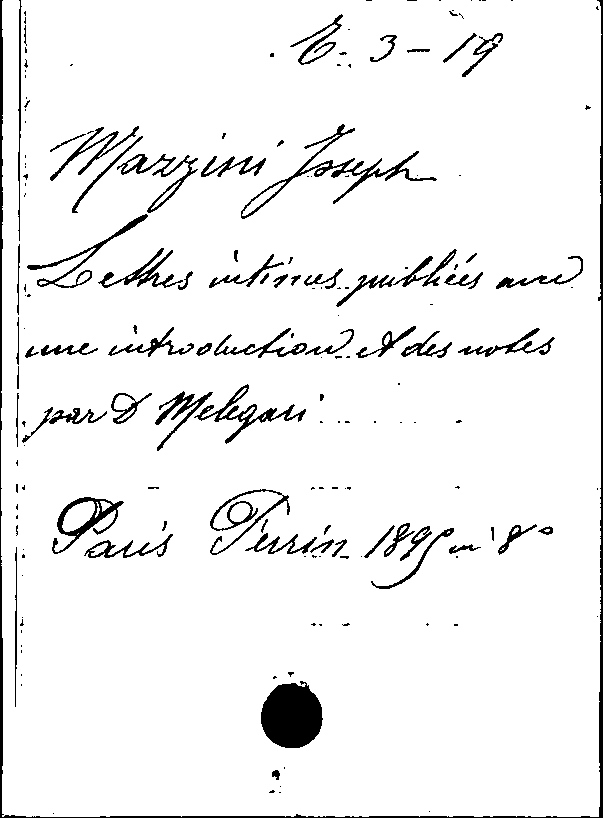 E. 3-19
Mazzini Joseph
Lettres intimes publiées avec
une introduction et des notes
par D Melegari
Paris Perrin 1895 in 8°